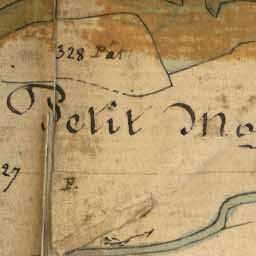 328 Pât
Petit Mo
27
P.